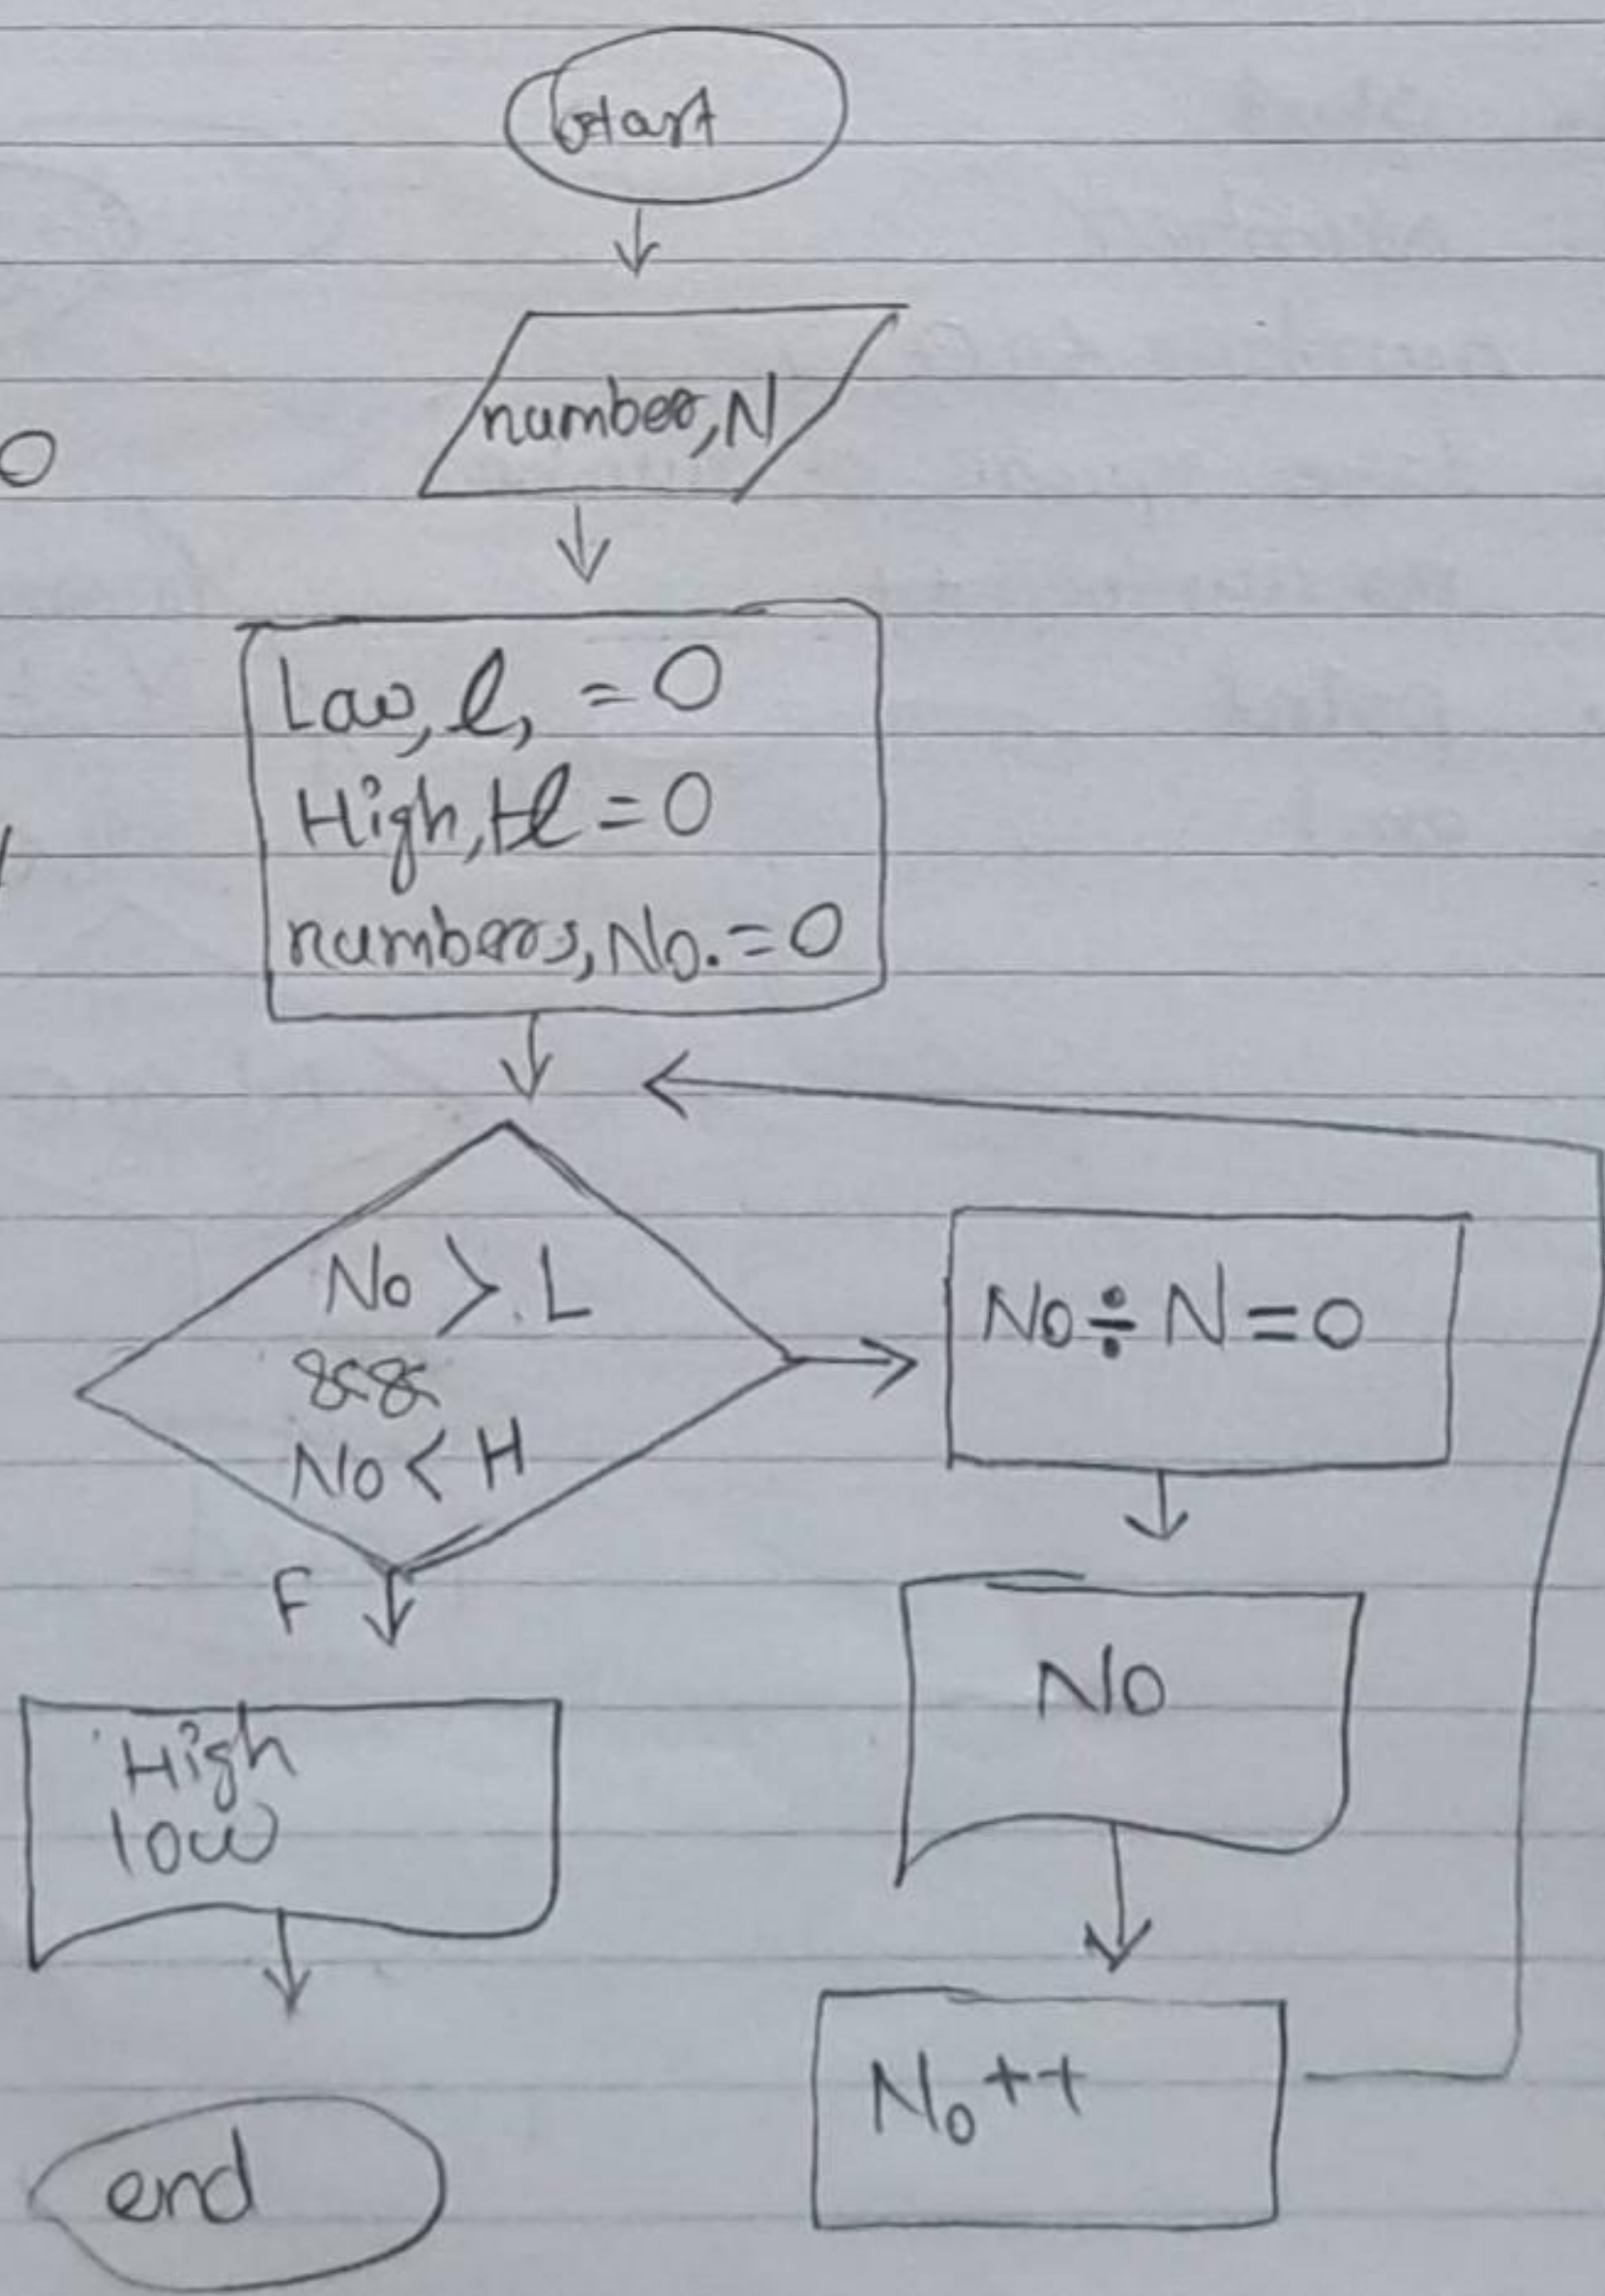 start
number, N
0
Law, l, = 0
High, Hl = 0
numbers, No. = 0
No > . L
&&
No < H
No ÷ N = 0
F
No
High
low
No ++
end